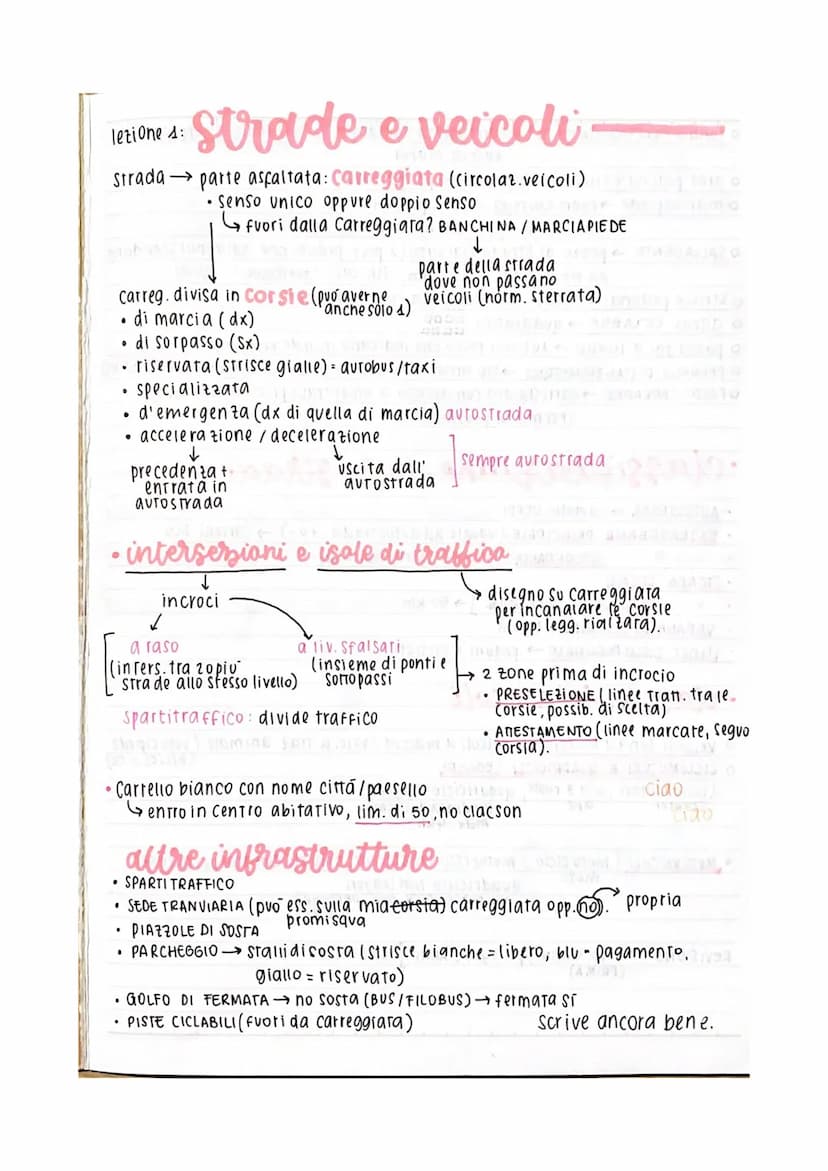 lezione 1: strade e veicoli
strada → parte asfaltata: carreggiata (circolaz. veicoli)
• senso unico oppure doppio senso
↳ fuori dalla carreggiata? BANCHINA / MARCIAPIEDE
parte della strada
dove non passano
veicoli (norm. sterrata)
carreg. divisa in corsie (può averne
anche solo 1)
• di marcia (dx)
• di sorpasso (sx)
• riservata (strisce gialle) = autobus/taxi
• specializzata
• d'emergenza (dx di quella di marcia) autostrada
• accelerazione / decelerazione
precedenza +
entrata in
autostrada
uscita dall'
autostrada
sempre autostrada
• intersezioni e isole di traffico
incroci
disegno su carreggiata
per incanalare le corsie
(opp. legg. rialzata).
a raso
(inters. tra 2 o più
strade allo stesso livello)
a liv. sfalsati
(insieme di ponti e
sottopassi
→ 2 zone prima di incrocio
• PRESELEZIONE (linee tratt. tra le
corsie, possib. di scelta)
• ATTESTAMENTO (linee marcate, seguo
corsia).
spartitraffico: divide traffico
• Cartello bianco con nome città/paesello
↳ entro in centro abitativo, lim. di 50, no clacson
ciao
ciao
altre infrastrutture
• SPARTITRAFFICO
• SEDE TRANVIARIA (può ess. sulla mia corsia) carreggiata opp. no). propria
promisqua
• PIAZZOLE DI SOSTA
• PARCHEGGIO → stalli di costa (strisce bianche = libero, blu = pagamento.
giallo = riservato)
• GOLFO DI FERMATA → no sosta (BUS/FILOBUS) → fermata sì
• PISTE CICLABILI (fuori da carreggiata)
scrive ancora bene.